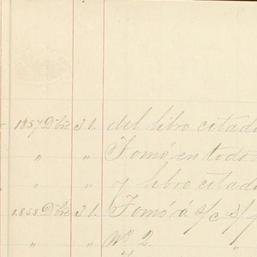 1857 Dbre 31. del libro citado
" " Tomó en todo
" " y libro citado
1858 Dbre 31. Tomó á s/c
" " Nº 2 "